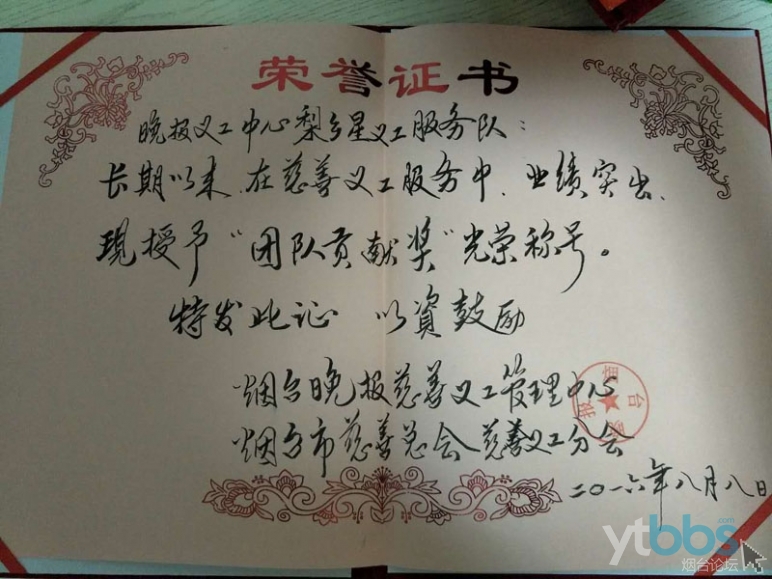 荣誉证书
晚报义工中心梨乡星义工服务队：
长期以来、在慈善义工服务中、业绩突出、
现授予“团队贡献奖”光荣称号。
特发此证 以資鼓励
烟台晚报慈善义工管理中心
烟台市慈善总会慈善义工分会
二〇一六年八月八日
ytbbs.com
烟台论坛